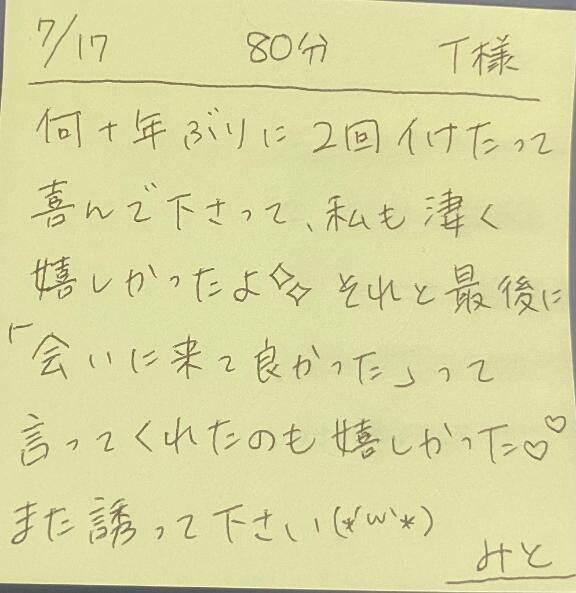 7/17 80分 T様
何十年ぶりに2回イけたって
喜んで下さって、私も凄く
嬉しかったよ✧✧ それと最後に
「会いに来て良かった」って
言ってくれたのも嬉しかった♡♡
また誘って下さい(*'ω'*)
みと